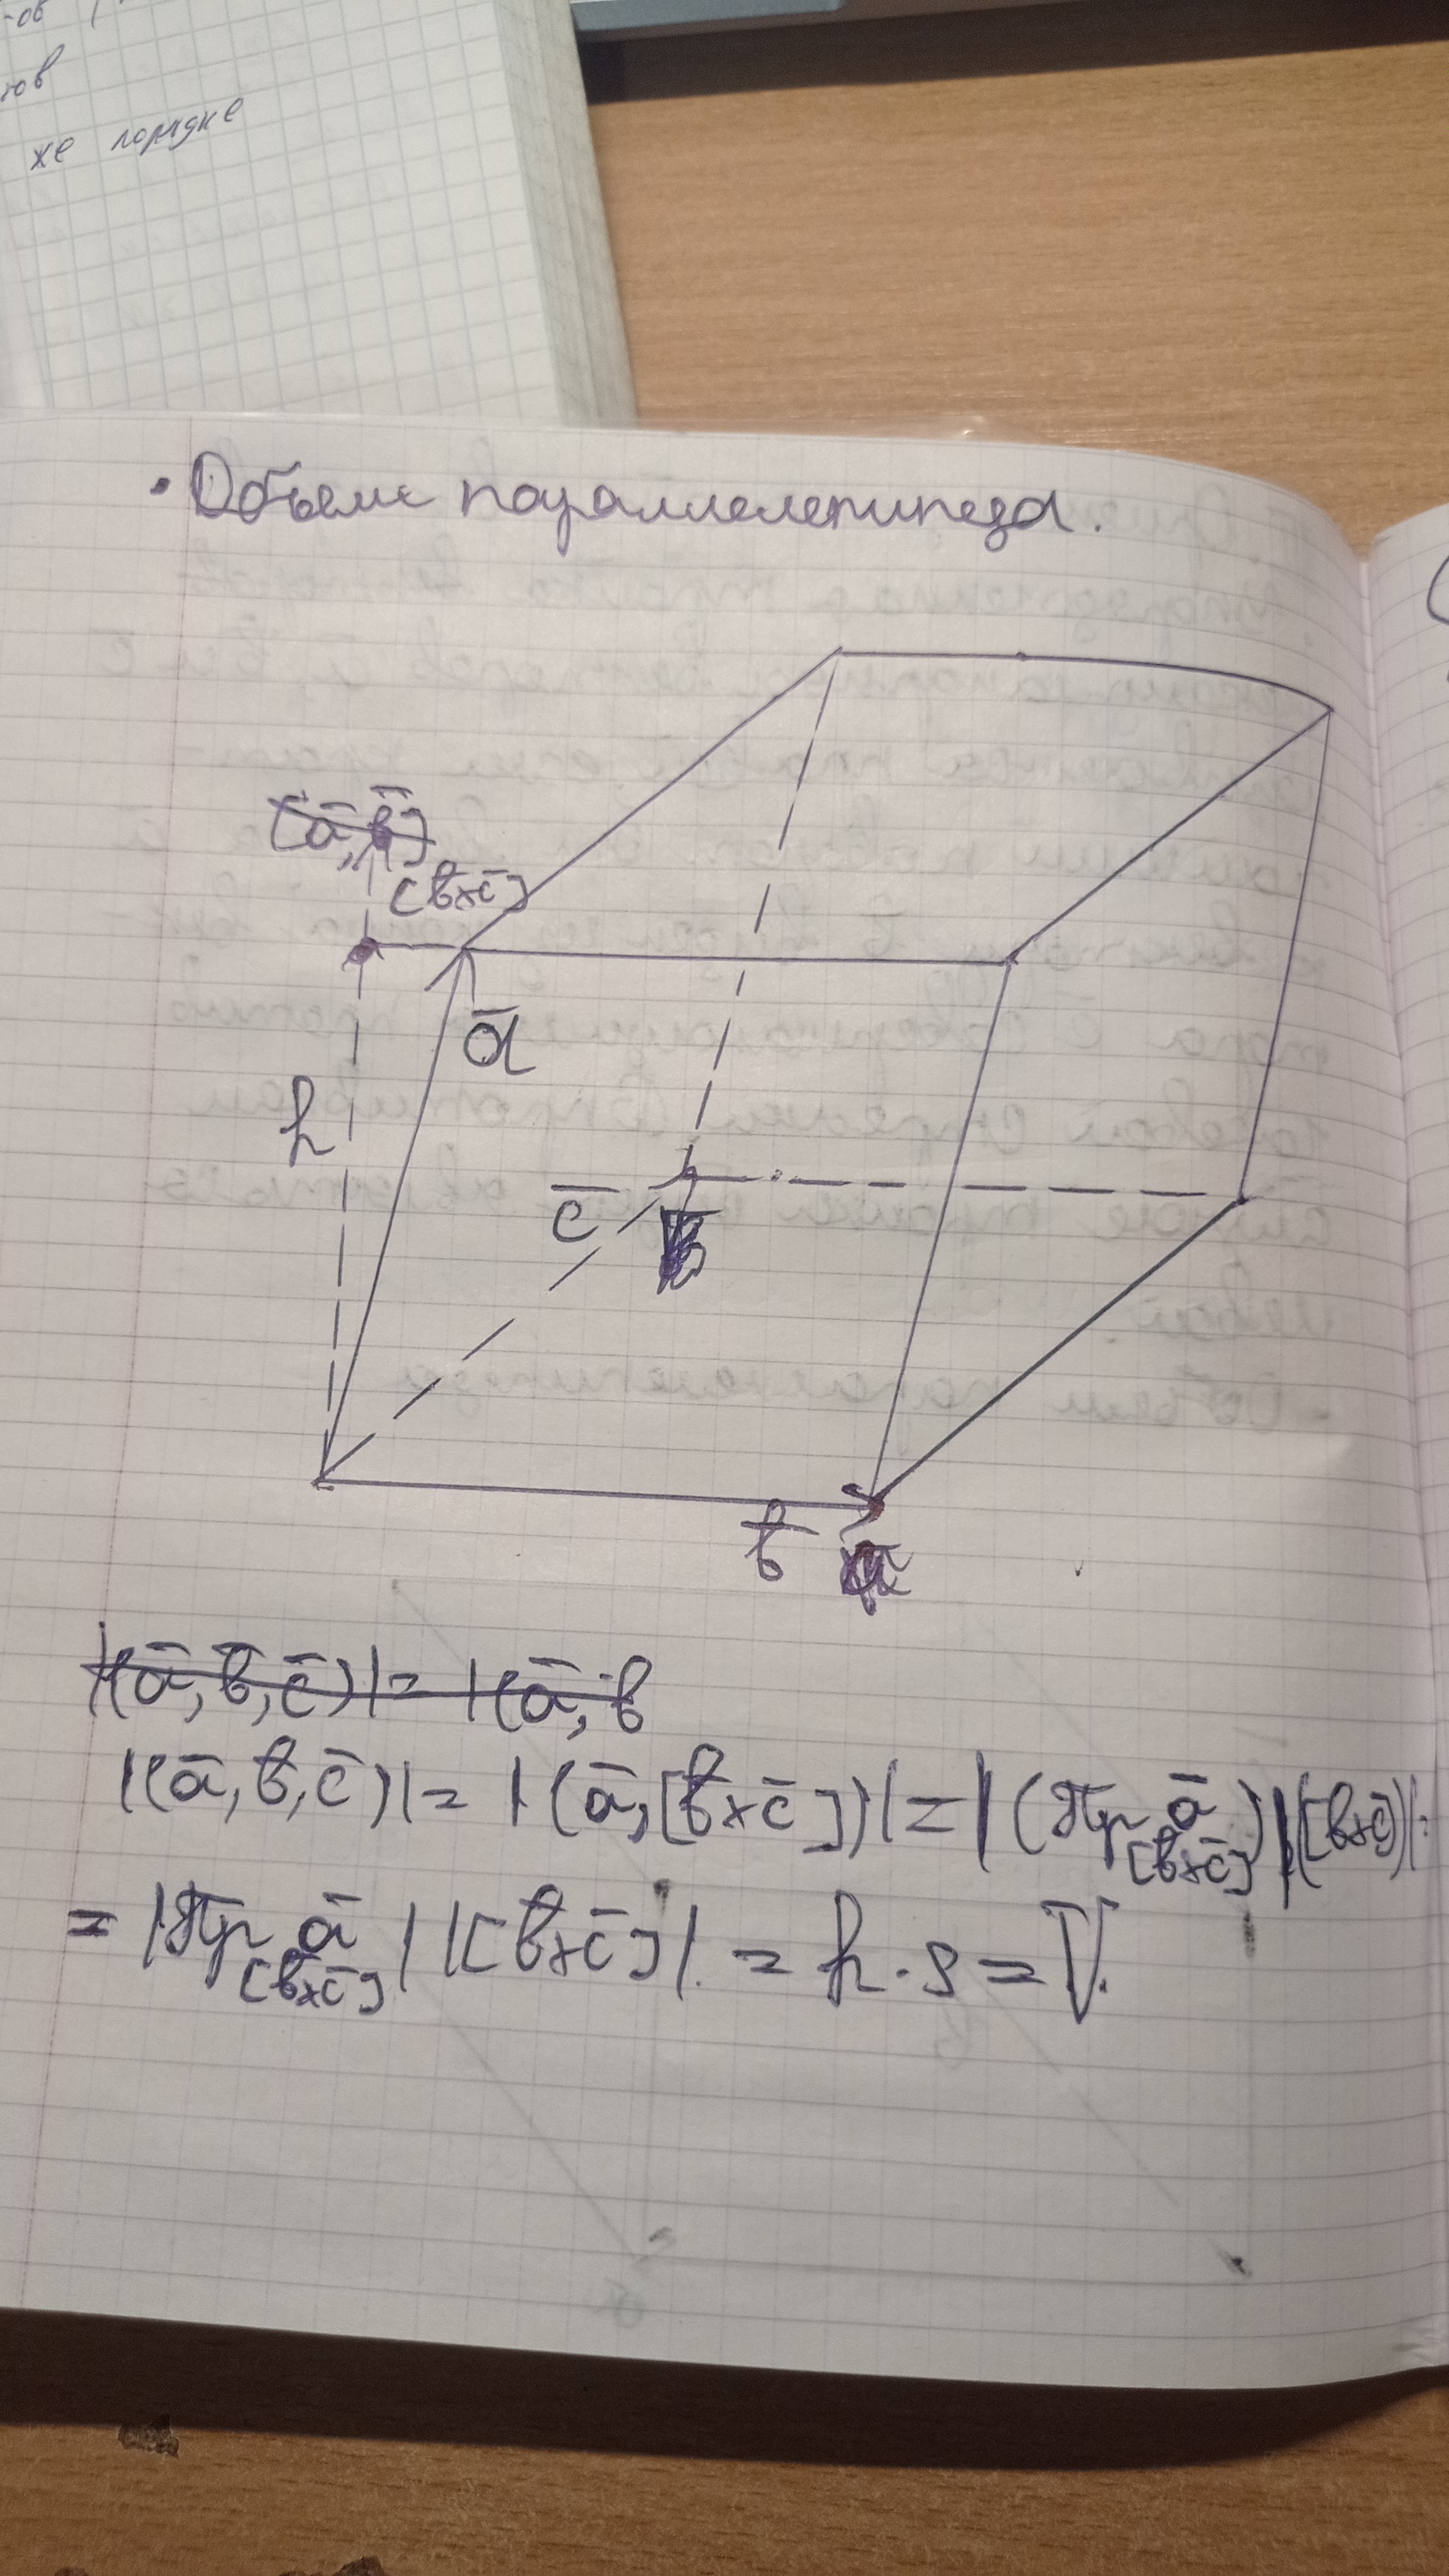 -ов
тов
же порядке
• Объем параллелепипеда.
[ā, b̄]
[b̄×c̄]
ā
h
c̄
b̄
|(ā, b̄, c̄)| = |(ā, b
|(ā, b̄, c̄)| = |(ā, [b̄×c̄])| = |(Пр_[b̄×c̄] ā)| |[b̄×c̄]| =
= |Пр_[b̄×c̄] ā| |[b̄×c̄]| = h · S = V.